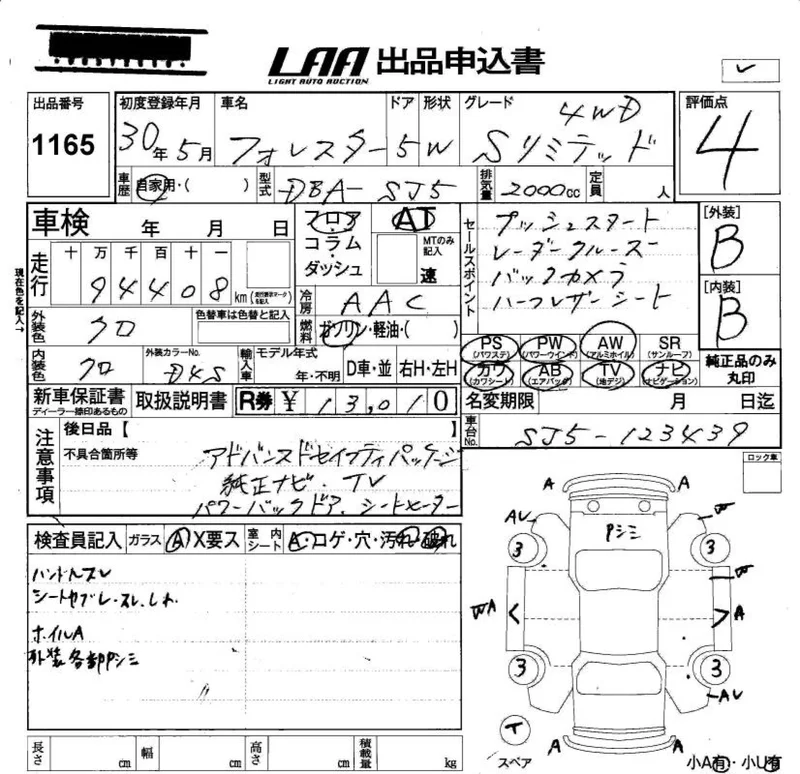 LAA 出品申込書
LIGHT AUTO AUCTION
出品番号 1165
初度登録年月 30年5月
車名 フォレスター
ドア 5
形状 W
グレード 4WD
Sリミテッド
評価点 4
車歴 自家用・( )
型式 DBA-SJ5
排気量 2000cc
定員 人
車検 年 月 日
フロア
コラム
・
ダッシュ
AT
MTのみ記入
速
セールスポイント
プッシュスタート
レーダークルーズ
バックカメラ
ハーフレザーシート
[外装] B
[内装] B
現在色を記入→
走行 十 万 千 百 十 一
9 4 4 0 8 km
(走行要済マーク)を記入
冷房 AAC
燃料 ガソリン・軽油・( )
外装色 クロ
色替車は色替と記入
内装色 クロ
外装カラーNo. D4S
輸入車
モデル年式 年・不明
D車・並 右H・左H
PS (パワステ)
PW (パワーウインド)
AW (アルミホイル)
SR (サンルーフ)
カワ (カワシート)
AB (エアバッグ)
TV (地デジ)
ナビ (ナビゲーション)
純正品のみ丸印
新車保証書 ディーラー捺印あるもの
取扱説明書
R券 ¥ 13,010
名変期限 月 日迄
車台No. SJ5-123439
注意事項
後日品【 】
不具合箇所等
アドバンスドセイフティパッケージ
純正ナビ、TV
パワーバックドア、シートヒーター
ロック車
検査員記入
ガラス A X要ス
室内シート A・コゲ・穴・汚れ・破れ
ハンドルスレ
シートヤブレ、スレ、しわ
ホイルA
外装各部Pシミ
A A
AU W
Pシミ
3 3
W
WA A
3 3
AU
T
スペア
A A
小A有・小U有
長さ cm
幅 cm
高さ cm
積載量 kg